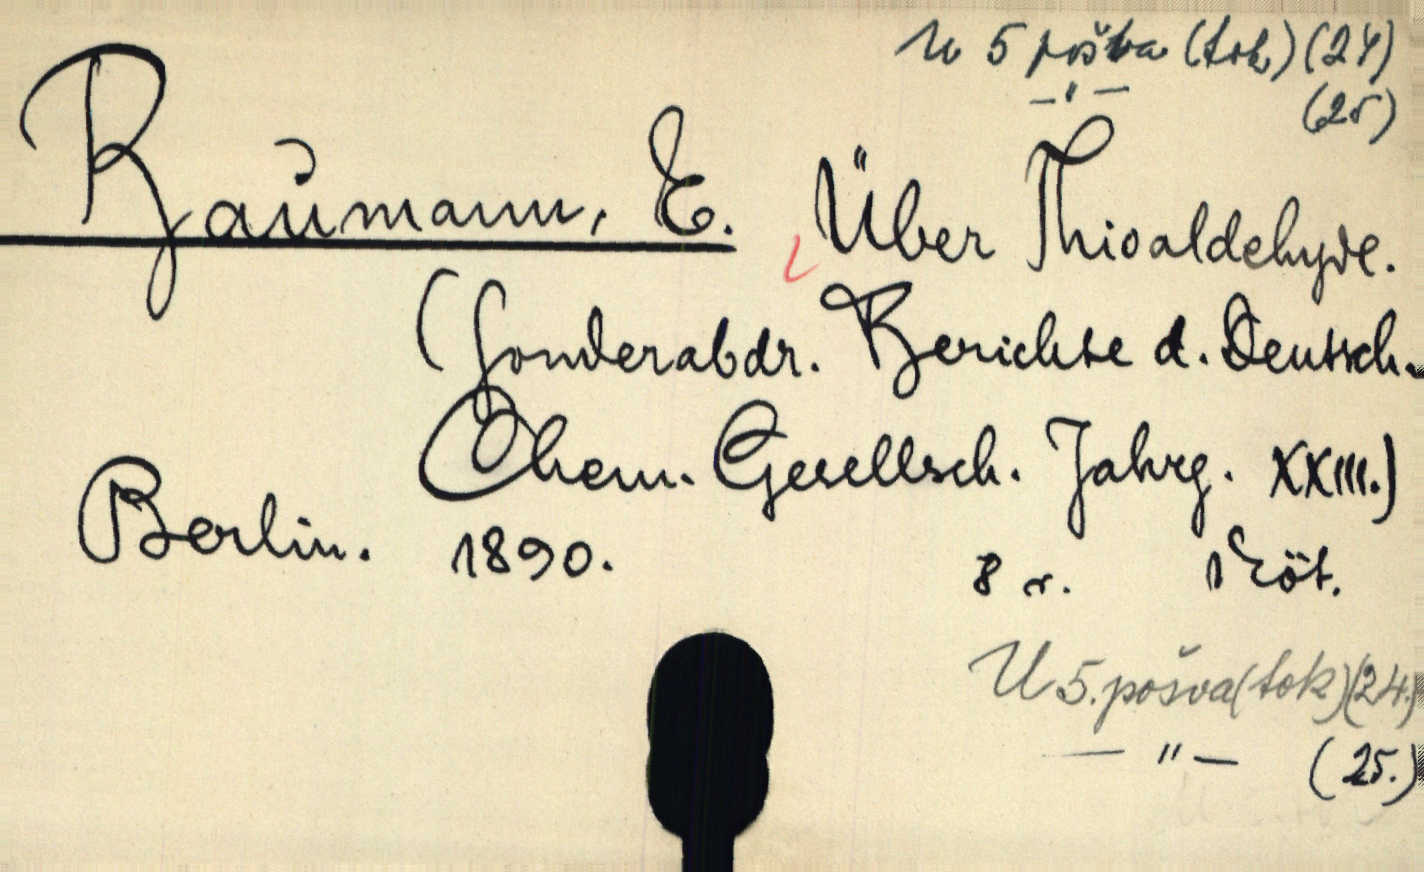 U 5 pošva (tok) (24)
— " — (25)
Baumann, E. Über Thioaldehyde.
(Sonderabdr. Berichte d. Deutsch.
Chem. Gesellsch. Jahrg. XXIII.)
Berlin. 1890. 8 r. 1 köt.
U 5. pošva (tok) (24.)
— " — (25.)